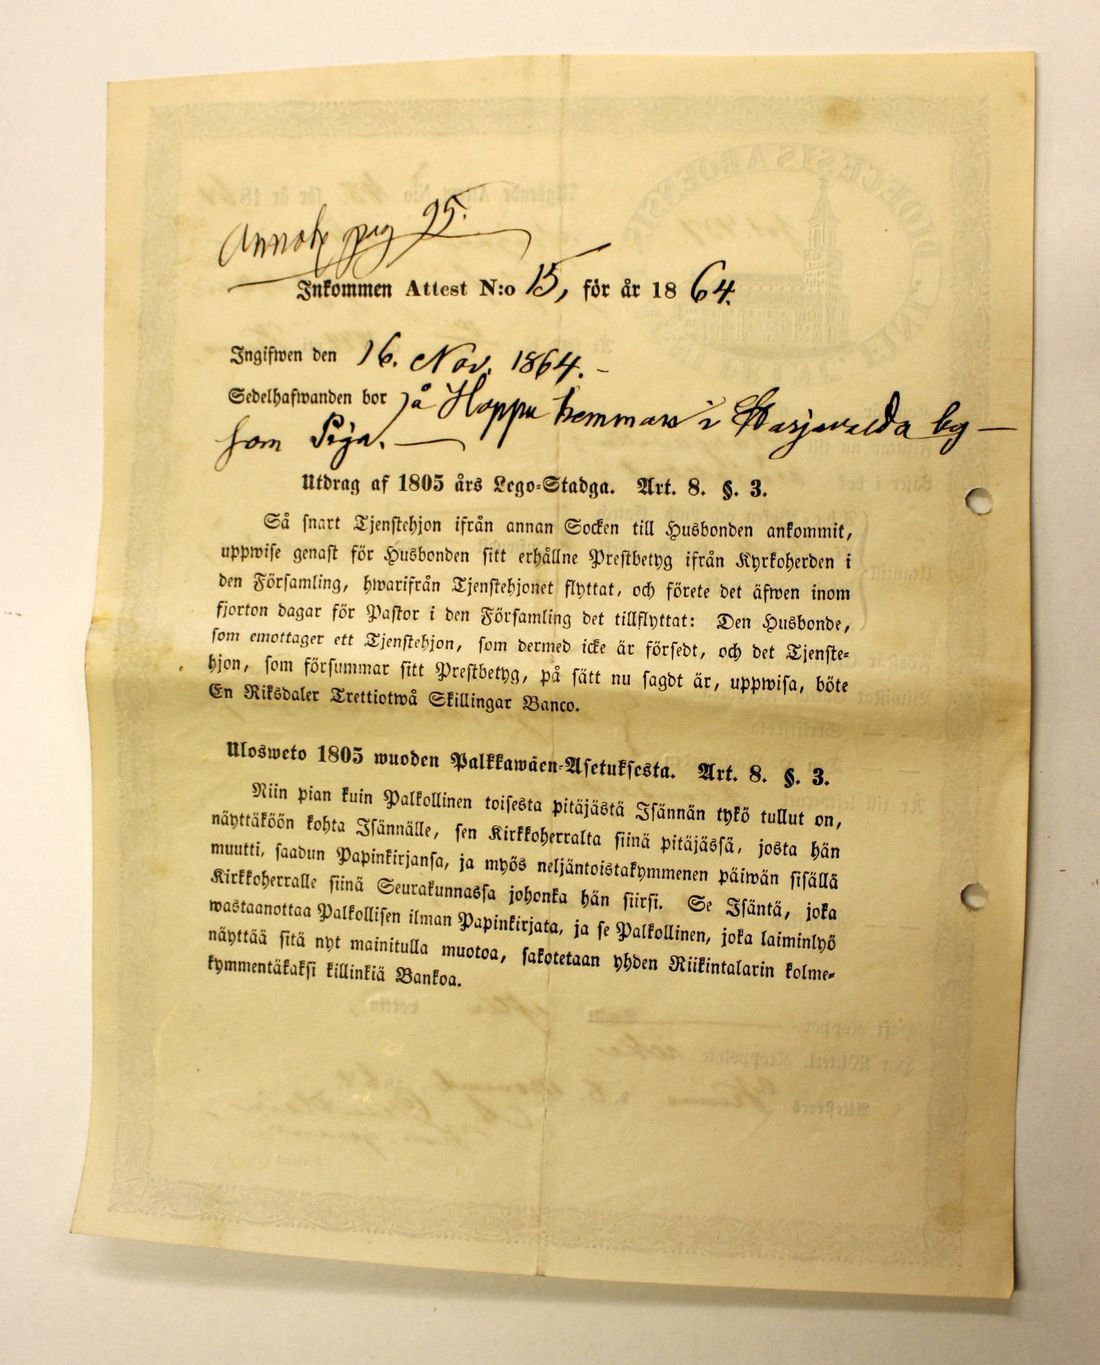 Annot pag 95.
Inkommen Attest N:o 15, för år 1864.
Ingifwen den 16. Nov. 1864.
Sedelhafwanden bor på Hoppu hemman i Harjavalda by
som Piga.
Utdrag af 1805 års Lego-Stadga. Art. 8. §. 3.
Så snart Tjenstehjon ifrån annan Socken till Husbonden ankommit,
uppwise genast för Husbonden sitt erhållne Prestbetyg ifrån Kyrkoherden i
den Församling, hwarifrån Tjenstehjonet flyttat, och förete det äfwen inom
fjorton dagar för Pastor i den Församling det tillflyttat: Den Husbonde,
som emottager ett Tjenstehjon, som dermed icke är försedt, och det Tjenste-
hjon, som försummar sitt Prestbetyg, på sätt nu sagdt är, uppwisa, böte
En Riksdaler Trettiotwå Skillingar Banco.
Ulosweto 1805 wuoden Palkkawäen-Asetuksesta. Art. 8. §. 3.
Niin pian kuin Palkollinen toisesta pitäjästä Isännän tykö tullut on,
näyttäköön kohta Isännälle, sen Kirkkoherralta siinä pitäjässä, josta hän
muutti, saadun Papinkirjansa, ja myös neljäntoistakymmenen päiwän sisällä
Kirkkoherralle siinä Seurakunnassa johonka hän siirsi. Se Isäntä, joka
wastaanottaa Palkollisen ilman Papinkirjata, ja se Palkollinen, joka laiminlyö
näyttää sitä nyt mainitulla muotoa, sakotetaan yhden Riikintalarin kolme-
kymmentäkaksi killinkiä Bankoa.